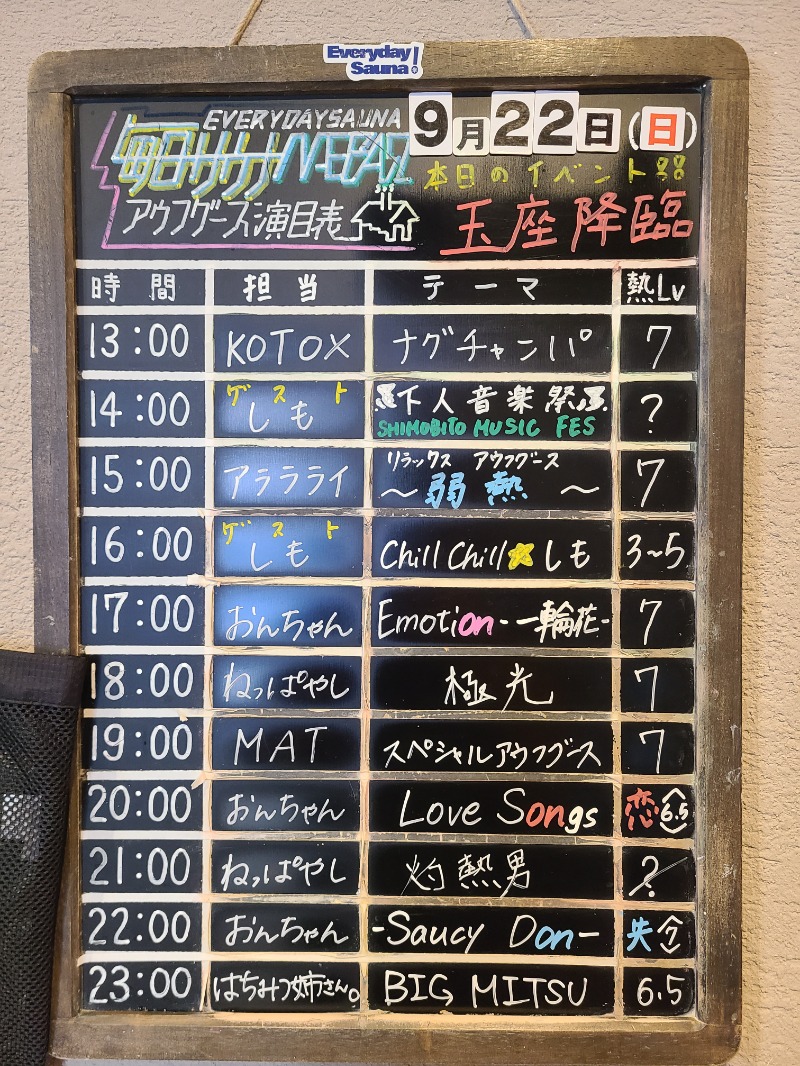 Everyday
Sauna!
EVERYDAYSAUNA
毎日サウナ
9月22日(日)
本日のイベント
アウフグース演目表
玉座降臨
時間 担当 テーマ 熱Lv
13:00 KOTOX ナグチャンパ 7
ゲスト
14:00 しも 下人音楽祭 ?
SHIMOBITO MUSIC FES
リラックス アウフグース
15:00 アララライ 〜弱熱〜 7
ゲスト
16:00 しも Chill Chill しも 3~5
17:00 おんちゃん Emotion-一輪花- 7
18:00 ねっぱやし 極光 7
19:00 MAT スペシャルアウフグース 7
20:00 おんちゃん Love Songs 恋 6.5
21:00 ねっぱやし 灼熱男 ?
22:00 おんちゃん -Saucy Don- 失 7
23:00 はちみつ姉さん。 BIG MITSU 6.5